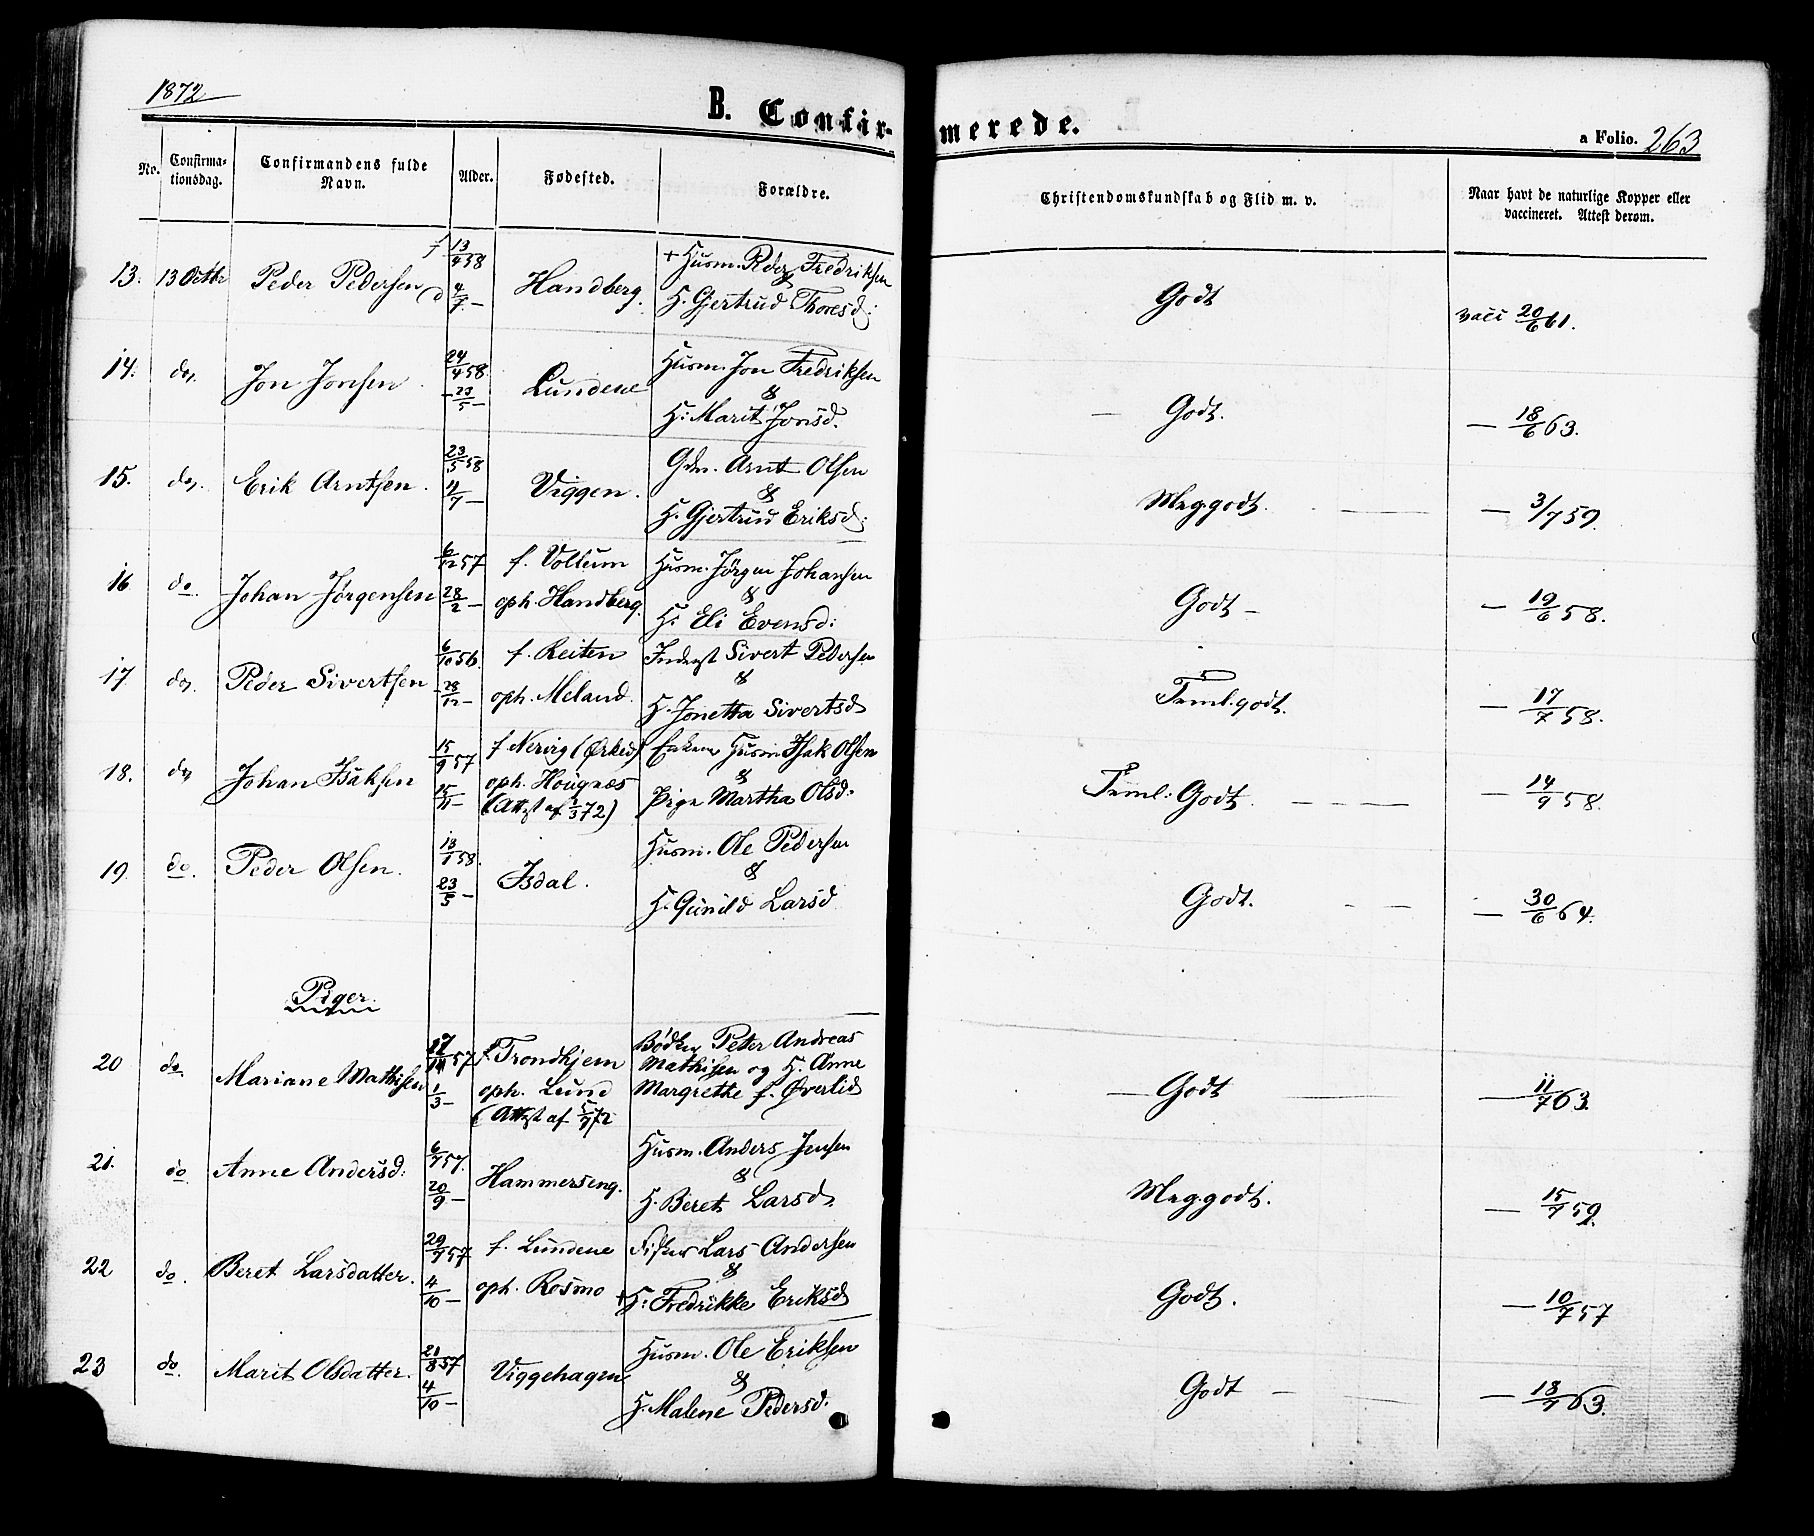 1872
B. Confir-
merede.
a Folio. 263
No.
Confirma-
tionsdag.
Confirmandens fulde
Navn.
Alder.
Fødested.
Forældre.
Christendomskundskab og Flid m. v.
Naar havt de naturlige Kopper eller
vaccineret. Attest derom.
13. 13 Octbr Peder Pedersen f 13/4 58 d 4/7 — Handberg. + Husm. Peder Fredriksen
& H. Gjertrud Thoresd: Godt vacc 20/6 61.
14. do. Jon Jonsen 24/4 58. — 23/5 — Lundene Husm. Jon Fredriksen
&
H: Marit Jonsd. — Godt. — 18/6 63.
15. do. Erik Arntsen. 23/5 58 4/7 — Viggen. Gdm. Arnt Olsen
&
H. Gjertrud Eriksd: Meg.godt. — 3/7 59.
16 do. Johan Jørgensen 6/12 57 28/2 — f. Vollum Husm. Jørgen Johansen
oph. Handberg. &
H: Eli Evensd: Godt — — 19/6 58.
17 do. Peder Sivertsen 6/10 56. 28/12 — f. Reiten Inderst Sivert Pedersen
oph. Meland. &
H. Jonetta Sivertsd Teml. godt. — 17/7 58.
18. do. Johan Isaksen 15/9 57 15/11 — f Nervig (Ørked) Husm Isak Olsen
oph. Hougnæs &
(Attest af 1/3 72) Pige Martha Olsd. Teml. Godt. — 14/9 58.
19. do. Peder Olsen. 13/1 58. 23/5 — Isdal. Husm. Ole Pedersen
&
H. Gunild Larsd Godt. — 30/6 64.
Piger.
20 do. Mariane Mathisen 57 1/3 — f. Trondhjem Bødker Peter Andreas
oph. Lund Mathisen og H. Anne
(Attest af 5/7 72 Margrethe f. Øverlid — Godt — 11/7 63.
21. do. Anne Andersd: 6/7 57. 20/9 — Hammerseng. Husm. Anders Jensen
&
H. Beret Larsd. Meg.godt. — 15/7 59.
22 do. Beret Larsdatter. 29/7 57 4/10 — f. Lundene Fisker Lars Andersen
oph. Rosmo &
+ H: Fredrikke Eriksd Godt. — 10/7 57
23 do. Marit Olsdatter. 21/8 57 4/10 — Viggehagen Husm. Ole Eriksen
&
H. Malene Pedersd. Godt — — 18/7 63.